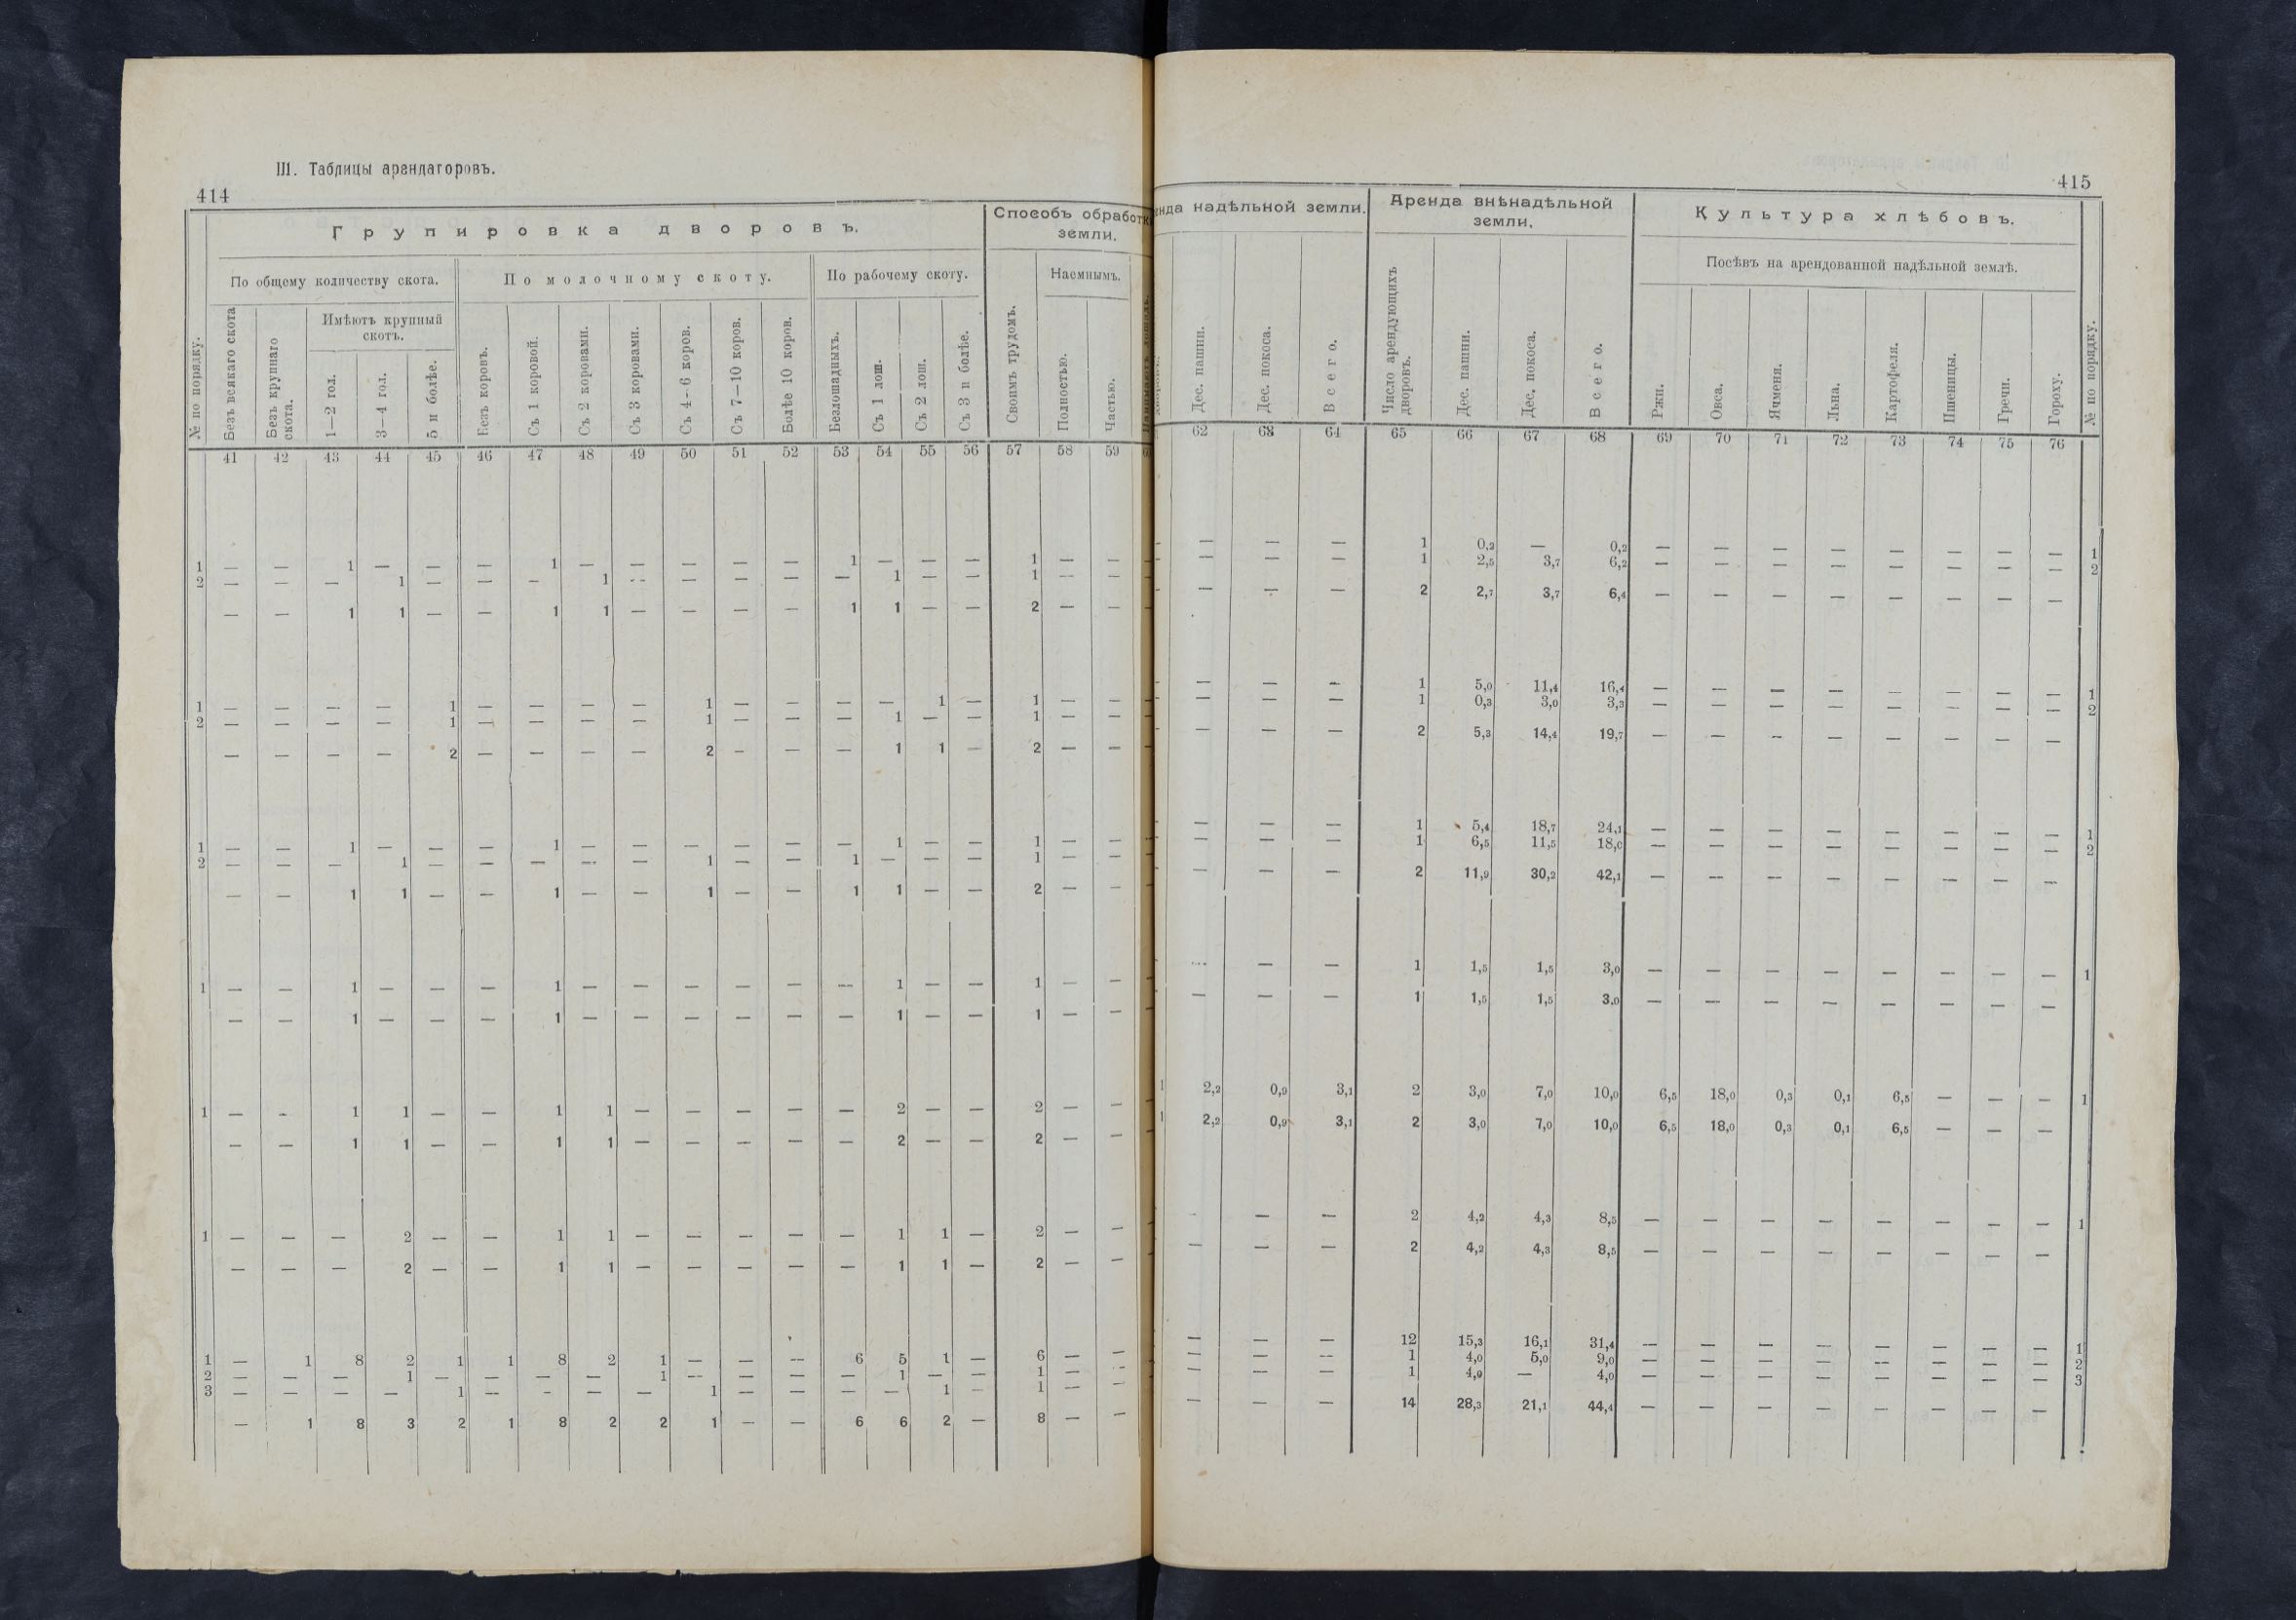 III. Таблицы арендаторовъ.
414
Групировка дворовъ.
Способъ обработки
земли.
По общему количеству скота.
По молочному скоту.
По рабочему скоту.
Наемнымъ.
№ по порядку.
Безъ всякаго скота
Безъ крупнаго скота.
Имѣютъ крупный скотъ.
1—2 гол.
3—4 гол.
5 и болѣе.
Безъ коровъ.
Съ 1 коровой.
Съ 2 коровами.
Съ 3 коровами.
Съ 4-6 коров.
Съ 7—10 коров.
Болѣе 10 коров.
Безлошадныхъ.
Съ 1 лош.
Съ 2 лош.
Съ 3 и болѣе.
Своимъ трудомъ.
Полностью.
Частью.
41 42 43 44 45 46 47 48 49 50 51 52 53 54 55 56 57 58 59
1 — — 1 — — — 1 — — — — — 1 — — — 1 — —
2 — — — 1 — — — 1 — — — — — 1 — — 1 — —
— — 1 1 — — 1 1 — — — — 1 1 — — 2 — —
1 — — — — 1 — — — — 1 — — — — 1 — 1 — —
2 — — — — 1 — — — — 1 — — — 1 — — 1 — —
— — — — 2 — — — — 2 — — — 1 1 — 2 — —
1 — — 1 — — — 1 — — — — — — 1 — — 1 — —
2 — — — 1 — — — — — 1 — — 1 — — — 1 — —
— — 1 1 — — 1 — — 1 — — 1 1 — — 2 — —
1 — — 1 — — — 1 — — — — — — 1 — — 1 — —
— — 1 — — — 1 — — — — — — 1 — — 1 — —
1 — — 1 1 — — 1 1 — — — — — 2 — — 2 — —
— — 1 1 — — 1 1 — — — — — 2 — — 2 — —
1 — — — 2 — — 1 1 — — — — — 1 1 — 2 — —
— — — 2 — — 1 1 — — — — — 1 1 — 2 — —
1 — 1 8 2 1 1 8 2 1 — — — 6 5 1 — 6 — —
2 — — — 1 — — — — 1 — — — — 1 — — 1 — —
3 — — — — 1 — — — — 1 — — — — 1 — 1 — —
— 1 8 3 2 1 8 2 2 1 — — 6 6 2 — 8 — —
415
надѣльной земли.
Аренда внѣнадѣльной
земли.
Культура хлѣбовъ.
Посѣвъ на арендованной надѣльной землѣ.
Дес. пашни.
Дес. покоса.
Всего.
Число арендующихъ дворовъ.
Дес. пашни.
Дес. покоса.
Всего.
Ржи.
Овса.
Ячменя.
Льна.
Картофеля.
Пшеницы.
Гречи.
Гороху.
№ по порядку.
62 63 64 65 66 67 68 69 70 71 72 73 74 75 76
— — — 1 0,2 — 0,2 — — — — — — — — 1
— — — 1 2,5 3,7 6,2 — — — — — — — — 2
— — — 2 2,7 3,7 6,4 — — — — — — — —
— — — 1 5,0 11,4 16,4 — — — — — — — — 1
— — — 1 0,3 3,0 3,3 — — — — — — — — 2
— — — 2 5,3 14,4 19,7 — — — — — — — —
— — — 1 5,4 18,7 24,1 — — — — — — — — 1
— — — 1 6,5 11,5 18,0 — — — — — — — — 2
— — — 2 11,9 30,2 42,1 — — — — — — — —
— — — 1 1,5 1,5 3,0 — — — — — — — — 1
— — — 1 1,5 1,5 3,0 — — — — — — — —
1 2,2 0,9 3,1 2 3,0 7,0 10,0 6,5 18,0 0,3 0,1 6,5 — — — 1
1 2,2 0,9 3,1 2 3,0 7,0 10,0 6,5 18,0 0,3 0,1 6,5 — — —
— — — 2 4,2 4,3 8,5 — — — — — — — — 1
— — — 2 4,2 4,3 8,5 — — — — — — — —
— — — 12 15,3 16,1 31,4 — — — — — — — — 1
— — — 1 4,0 5,0 9,0 — — — — — — — — 2
— — — 1 4,0 — 4,0 — — — — — — — — 3
— — — 14 28,3 21,1 44,4 — — — — — — — —